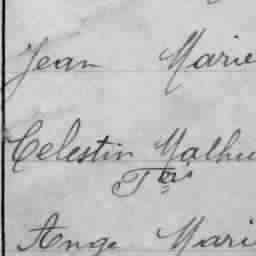 Jean Marie
Celestin Mathu
Ange Mari